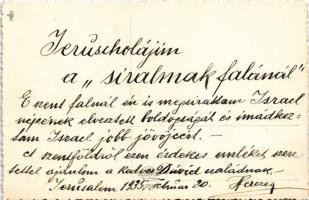 Jeruscholájim
a „siralmak falánál"
E szent falnál én is megsirattam Israel
népének elvesztett boldogságát és imádkoz-
tam Israel jobb jövőjeért.
A szentföldről ezen érdekes emléket szere-
tettel ajánlom a kedves Dávid családnak.
Jerusalem 1935. 20.